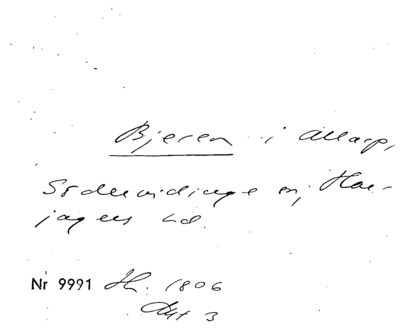 Bjeren i Allarp,
Södervidinge sn, Har-
jagers hd.
Nr 9991 Hh. 1806
Akt 3